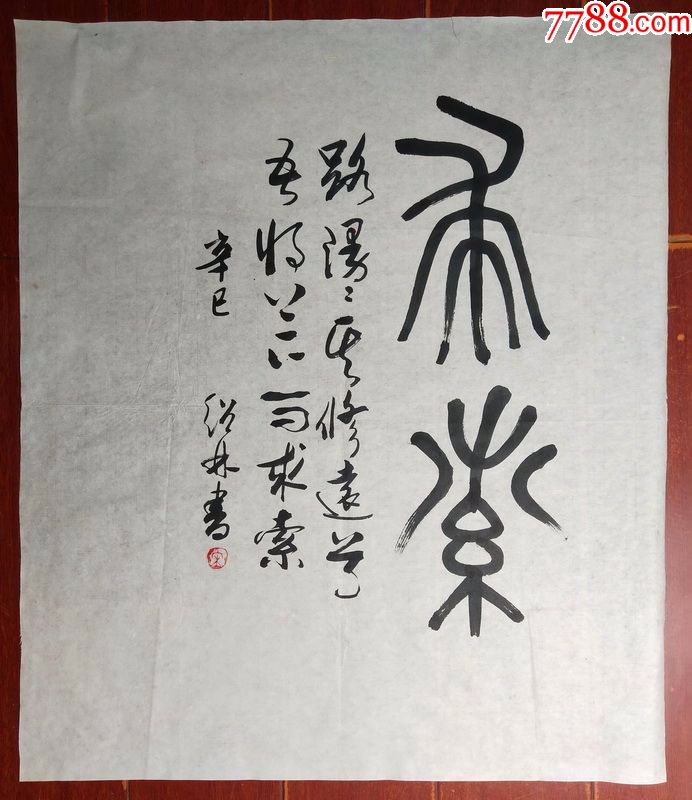 7788.com
求索
路漫〻其修遠兮
吾將上下而求索
辛巳 紹林書